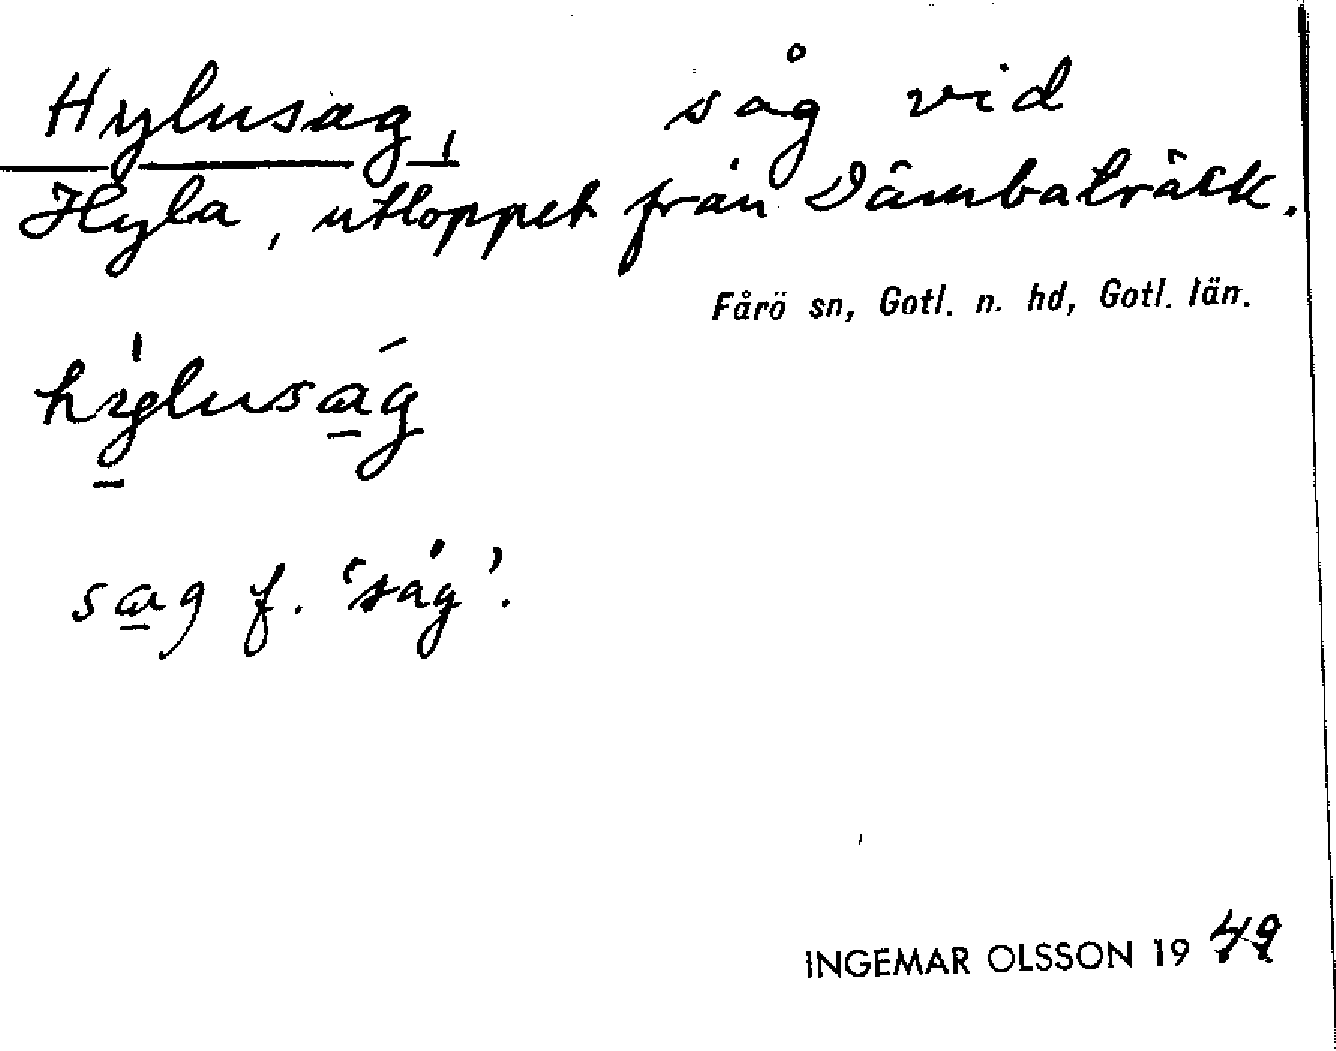 Hylusag, såg vid
Hyla, utloppet från Dämbaträsk.
Fårö sn, Gotl. n. hd, Gotl. län.
hy̲lusa̲g
sa̲g f. 'såg'.
INGEMAR OLSSON 1949